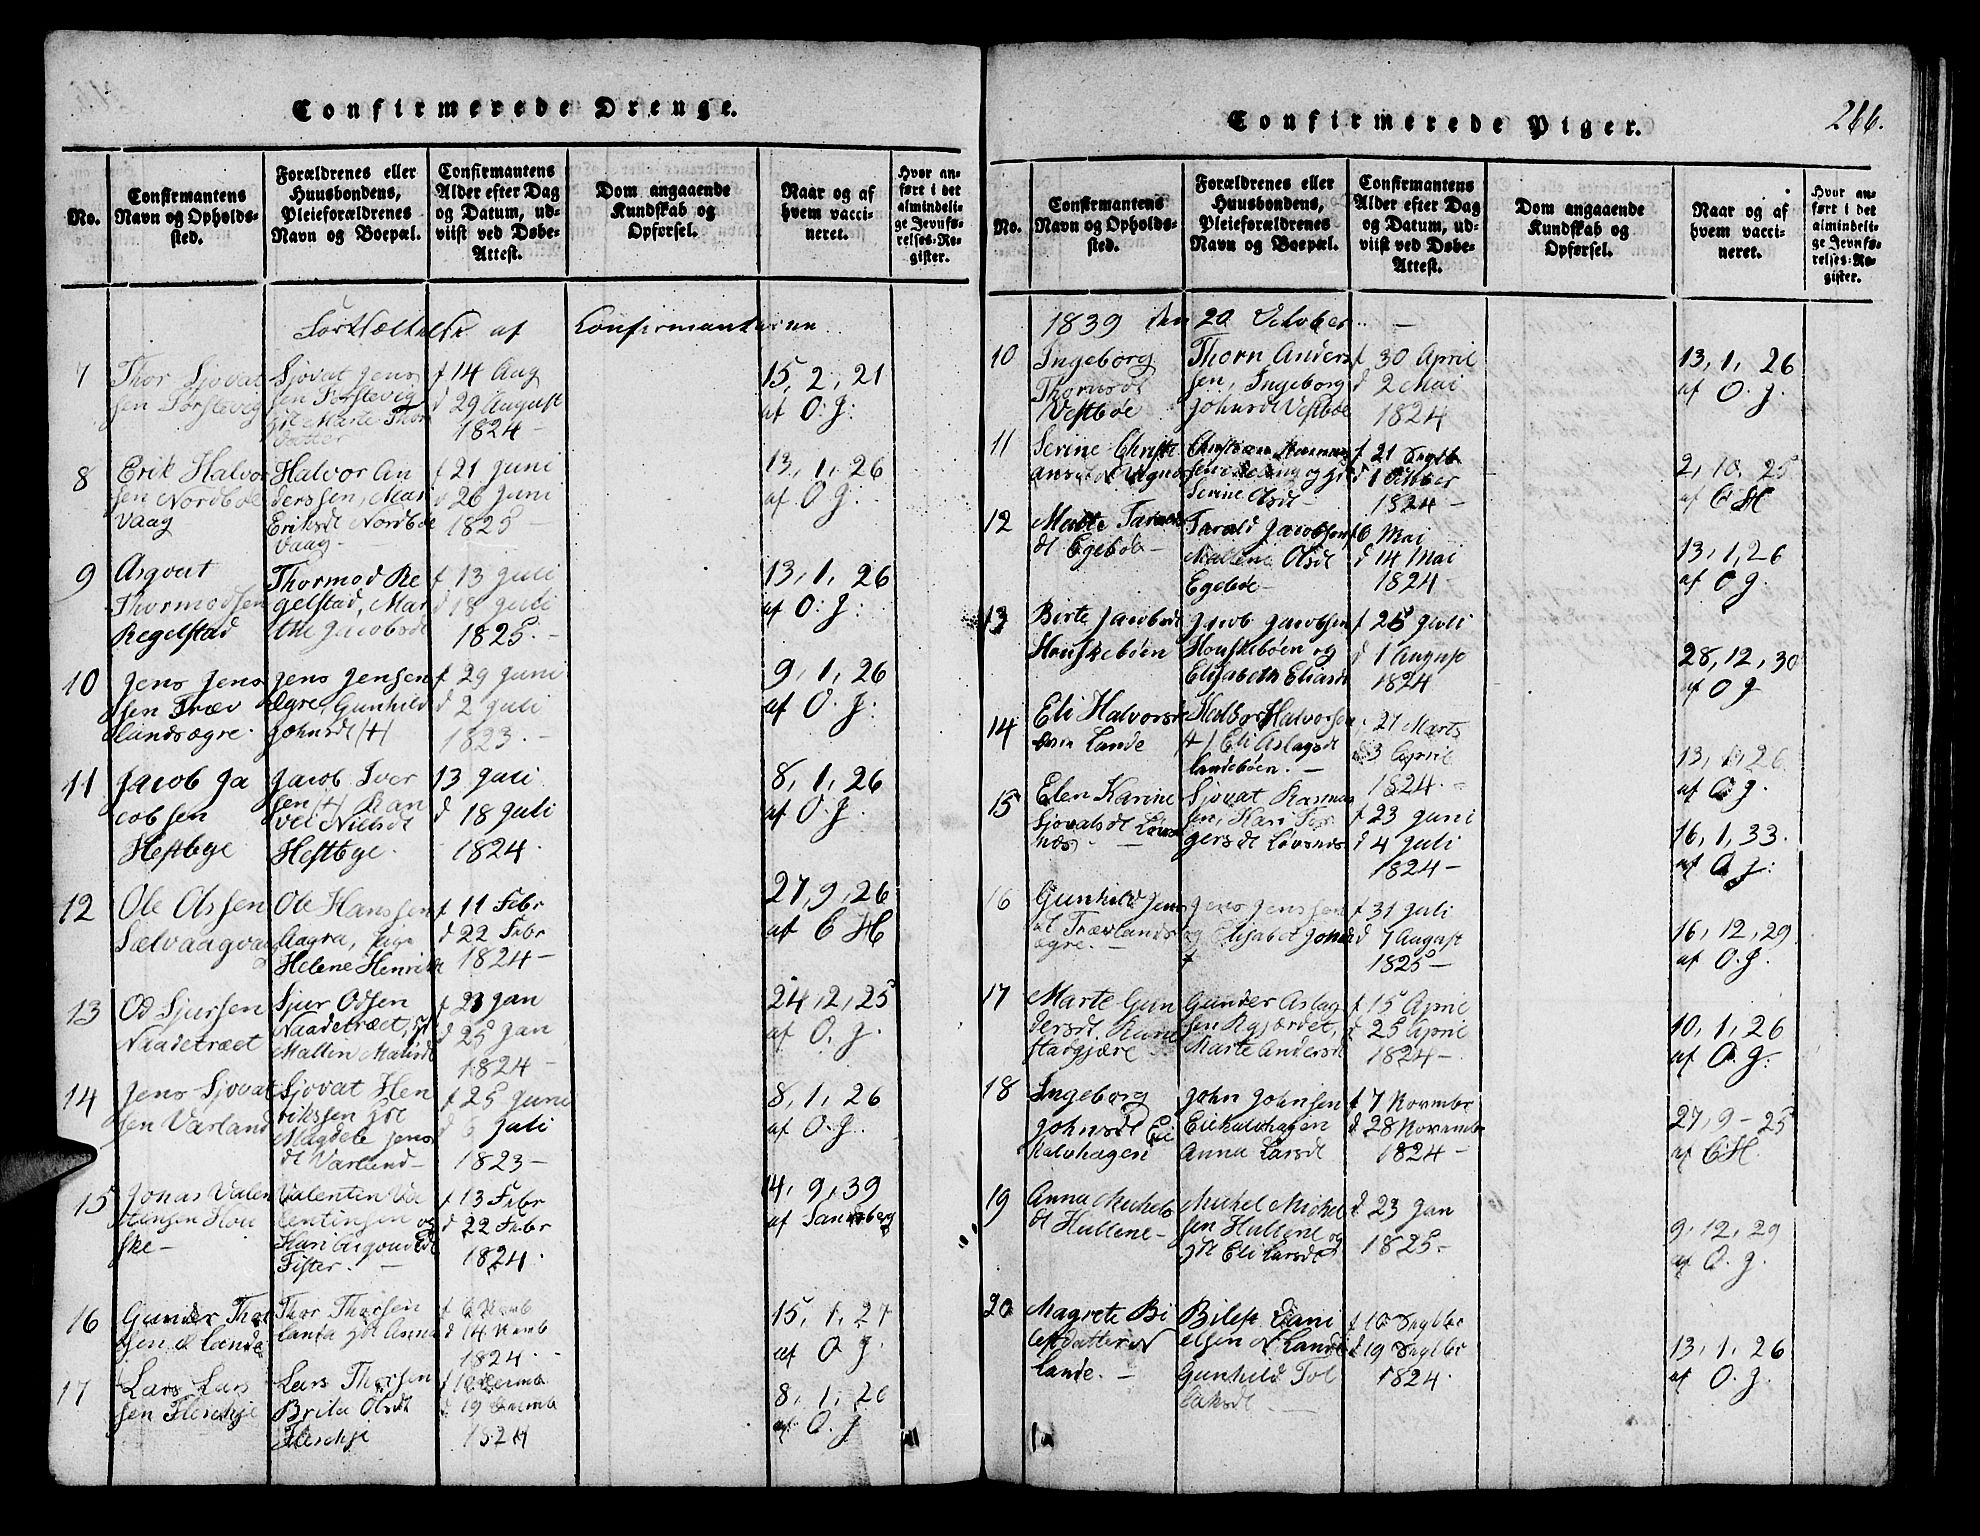 Confirmerede Drenge.
No.
Confirmantens
Navn og Opholds-
sted.
Forældrenes eller
Huusbondens,
Pleieforældrenes
Navn og Boepæl.
Confirmantens
Alder efter Dag
og Datum, ud-
viist ved Døbe-
Attest.
Dom angaaende
Kundskab og
Opførsel.
Naar og af
hvem vacci-
neret.
Hvor an-
ført i det
almindeli-
ge Jevnfø-
relses-Re-
gister.
af Confirmanterne
7
Thor Sjovat
sen Sørstevig
Sjovat Jens
sen Sørstevig
Marte Thor
datter
f 14 Aug
d 29 August
1824 -
15, 2, 21
af O. J.
8
Erik Halvor
sen Nordbøe
Vaag
Halvor An
derssen, Mar
Eriksdt Nordbøe
Vaag -
f 21 Juni
d 26 Juni
1825 -
13, 1, 26
af O J.
9
Asgout
Thormodsen
Regelstad
Thormod Re
gelstad, Mar
the Jacobsdt
f 13 Juli
d 18 Juli
1825. -
13, 1, 26
af O. J.
10
Jens Jens
sen Træv
landsøgre -
Jens Jensen
Øgre, Gunhild
Johnsdt (+)
f 29 Juni
d 2 Juli
1823. -
9, 1, 26
af O. J.
11
Jacob Ja
cobsen
Hestbye
Jacob Iver
sen (+) Ran
vei Nielsdt
Hestbye.
13 Juli
d 18 Juli
1824.
8, 1, 26
af O. J.
12
Ole Olssen
Sælvaag
Ole Hanssen
Aagra,
Helene Henriks
f 11 Febr
d 22 Febr
1824 -
27, 9, 26
af C H
13
Od Sjursen
Naadetræet
Sjur Odsen
Naadetræet,
Mallin
f 23 Jan
d 25 Jan
1824 -
24, 2, 25
af O. J.
14
Jens Sjovat
sen Varland
Sjovat Hen
rikssen
Magdele Jens
dt Varland -
f 25 Juni
d 6 Juli
1823 -
8, 1, 26
af O. J.
15
Jonas Valen
tinsen Hou
ske -
Valentin Va
lentinsen og
Kari Asgoutsdt
Fister. -
f 13 Febr
d 22 Febr
1824.
14, 9, 39
af Sandberg
16
Gunder Thor
sen Lande
Thor Thorsen
Lande Anna
f 6
d 14
1824.
15, 1, 27
af O J
17
Lars Lars
sen Fleskje
Lars Thorsen
Brita Olsdt
Fleskje
f 10
d 19
1824
8, 1, 26
af O. J
Confirmerede Piger.
266.
No.
Confirmantens
Navn og Opholds-
sted.
Forældrenes eller
Huusbondens,
Pleieforældrenes
Navn og Boepæl.
Confirmantens
Alder efter Dag
og Datum, ud-
viist ved Døbe-
Attest.
Dom angaaende
Kundskab og
Opførsel.
Naar og af
hvem vacci-
neret.
Hvor an-
ført i det
almindeli-
ge Jevnfø-
relses-Re-
gister.
1839 den 20 October -
10
Ingeborg
Thornsdt
Vestbøe
Thorn Anders
sen, Ingeborg
Johnsdt Vestbøe
f 30 April
d 2 Mai
1824
13, 1, 26
af O. J.
11
Serine Christi
ansdt
Christian Rasmus
sen
Serine Olsdt -
f 21 Septb
d 1 October
1824 -
2, 10, 25
af C H
12
Malle Taralds
dt Egebøe -
Tarald Jacobsen
Mallene Olsdt
Egebøe -
f 6 Mai
d 14 Mai
1824 -
13, 1, 26
af O J.
13
Birte Jacobsdt
Houskebøen
Jacob Jacobsen
Houskebøen og
Elisabeth Eliasdt
f 25 Juli
d 1 August
1824
28, 12, 30
af O J
14
Eli Halvorsdt
Lande
Halvorsen
(+) Eli Aslagsdt
Landebøen. -
27 Marts
d 3 April
1824. -
13, 1, 26
af O J.
15
Elen Karine
Sjovatsdt Løvs
næs -
Sjovat Rasmus
sen, Kari Tor
gersdt Løvsnæs
f 23 Juni
d 4 Juli
1824 -
16, 1, 33.
af O J.
16
Gunhild Jens
dt Trævlands
øgre. -
Jens Jenssen
og Elisabet Johns
+
f 31 Juli
d 7 August
1825 -
16, 12, 29
af O. J.
17
Marte Gun
dersdt
Gunder Aslag
sen
Marte Andersdt
f 15 April
d 25 April
1824 -
10, 1, 26
af O. J.
18
Ingeborg
Johnsdt Eie
kalvhagen
John Johnsen
Eiekalvhagen
Anna Larsdt
f 7 November
d 28 November
1824 -
27, 9 - 25
af C H.
19
Anna Michels
dt Hullene -
Michel Michel
sen Hullene og
Eli Larsdt
d 23 Jan
1825 -
9, 12, 29
af O. J.
20
Magrete Bi
lestdatter N
Lande. -
Bilest Dani
elsen N Lande
Gunhild Tol
laksdt -
f 10 Septbr
d 19 Septbr
1824.
13, 1, 26
af O. J.